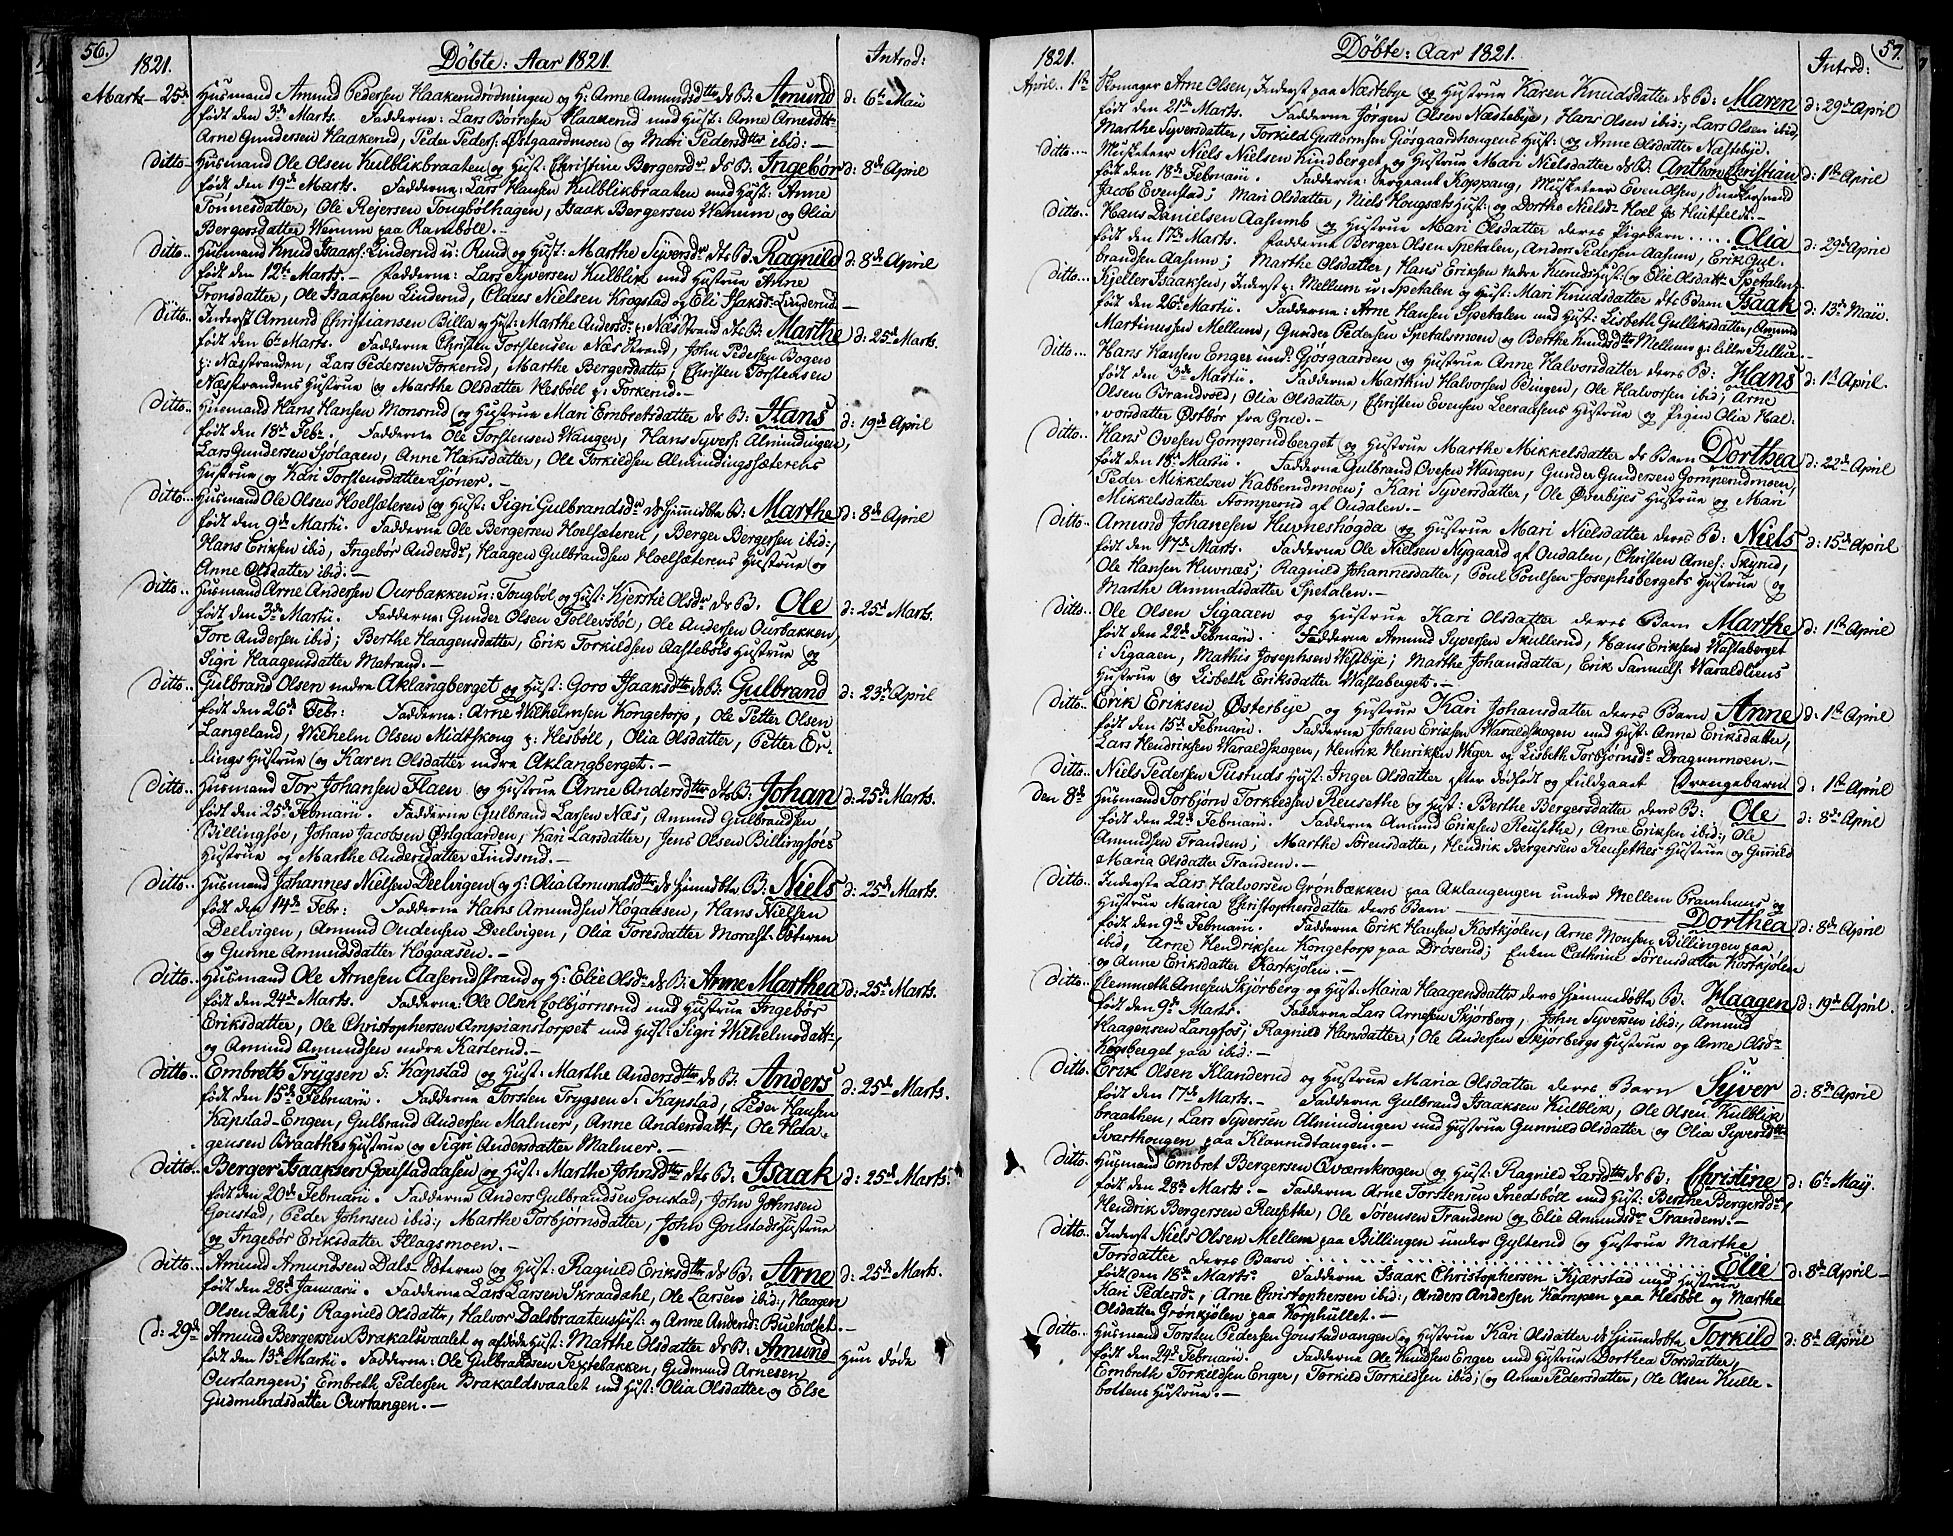 56.)
1821.
Döbte: Aar 1821.
Introd:
Marts 25de Husmand Amund Pedersen Haakerudrödningen og H: Anne Amundsdtter ds B: Amund d: 6te Maii
født den 3de Marts. Fadderne: Lars Borresen Haakerud med Hust: Anne Arnesdtr
Arne Gundersen Haakerud, Peder Peders: Østgaardmoen og Mari Pedersdtter ibid:
Ditto Husmand Ole Olsen Kulblikbraaten og Hust: Christine Bergersdr ds B: Ingebør d: 8de April
født den 19de Marts. Fadderne: Lars Hansen Kulblikbraaten med Hust: Anne
Tönnesdatter, Ole Rejersen Tougbölhagen, Isaak Bergersen Wemum og Olia
Bergersdatter Wemum paa Ramböll.
Ditto Husmand Knud Isaaks: Linderud u: Rund og Hust: Marthe Syversdr dts B: Ragnild d: 8de April
født den 12te Marts. Fadderne: Lars Syversen Kulblik med Hustrue Anne
Tronsdatter, Ole Isaaksen Linderud, Claus Nielsen Krogstad og Eli Isaksd: Linderud
Ditto Inderst Amund Christiansen Billa og Hust: Marthe Andersd: p: Næs Strand dts B: Marthe d: 25de Marts.
født den 6te Marts. Fadderne Christen Torstensen Næs Strand, John Pedersen Bogen
p: Næsstranden, Lars Pedersen Torkerud, Marthe Bergersdatter, Christen Torstensen
Næsstrandens Hustrue og Marthe Olsdatter Hesböl p: Torkerud.
Ditto Husmand Hans Hansen Monsrud og Hustrue Mari Embretsdatter ds B: Hans d: 19de April
født den 18de Febr. Fadderne Ole Torstensen Wangen, Hans Syvers: Almindingen,
Lars Gundersen Sjölaaen, Anne Hansdatter, Ole Torkildsen Almindingssæterens
Hustrue og Kari Torstensdatter Sjöner.
Ditto Husmand Ole Olsen Hoelsæteren og Hust: Sigri Gulbrandsdr ds hjemmedbte B: Marthe d: 8de April
født den 9de Martii. Fadderne Ole Bergersen Hoelsæteren, Berger Bergersen ibid:,
Hans Eriksen ibid, Ingebör Andersdr, Haagen Gulbrandsen Hoelsæterens Hustrue og
Anne Olsdatter ibid:
Ditto Husmand Arne Andersen Ourbakken u: Tougböl og Hust: Kjerstie Olsdr ds B. Ole d: 25de Marts.
født den 3de Martii. Fadderne: Gunder Olsen Tollevsböl, Ole Andersen Ourbakken,
Tore Andersen ibid; Berthe Haagensdatter, Erik Torkildsen Aasteböls Hustrue og
Sigri Haagensdatter Matrand.
Ditto Gulbrand Olsen nedre Aklangberget og Hust: Goro Isaaksdtter ds B: Gulbrand d: 23de April
født den 26de Febr: Fadderne: Arne Wilhelmsen Kongetorp, Ole Petter Olsen
Langeland, Wilhelm Olsen Midtskoug p: Hesböll, Olia Olsdatter, Petter Er-
lings Hustrue og Karen Olsdatter nedre Aklangberget.
Ditto Husmand Tor Johansen Flaen og Hustrue Anne Andersdtter dts B: Johan d: 25de Marts.
født den 25de Februarii. Fadderne Gulbrand Larsen Næs, Amund Gulbrandsen
Billingsöe, Johan Jacobsen Østgaarden, Kari Larsdatter, Jens Olsen Billingsöes
Hustrue og Marthe Andersdatter Findsrud.
Ditto Husmand Johannes Nielsen Deelvigen og H: Olia Amundsdtter ds hjemmedbte B: Niels d: 25de Marts.
født den 14de Febr: Fadderne Hans Amundsen Högaasen, Hans Nielsen
Deelvigen, Amund Oudensen Deelvigen, Olia Toresdatter Morast: Sæteren
og Gunne Amundsdatter Högaasen.
Ditto Husmand Ole Arnesen Aaserudstrand og H: Elie Olsdr ds B: Anne Marthea d: 25de Marts.
født den 24de Marts. Fadderne: Ole Olsen Colbjörnsrud med Hustrue Ingebör
Eriksdatter, Ole Christophersen Ampianstorpet med Hust: Sigri Wilhelmsdatt:,
og Amund Amundsen nedre Karterud.
Ditto Embreth Trygsen S: Kapstad og Hust: Marthe Andersdtter ds B: Anders d: 25de Marts.
født den 15de Februarii. Fadderne Torsten Trygsen S. Kapstad, Peder Hansen
Kapstad-Engen, Gulbrand Andersen Malmer, Anne Andersdatt:, Ole Haa-
gensen Braathes Hustrue og Sigri Andersdatter Malmer.
Ditto Berger Isaaksen Goustaddasen og Hust: Marthe Johnsdtter dts B: Isaak d: 25de Marts.
født den 20de Februarii. Fadderne Anders Gulbrandsen Goustad, John Johnsen
Goustad, Peder Johnsen ibid:, Marthe Torbjörnsdatter, John Goustads Hustrue
og Ingebör Eriksdatter Slagsmoen.
Ditto Amund Amundsen Dals-Sæteren og Hust: Ragnild Eriksdtter ds B: Arne d: 25de Marts.
født den 28de Januarii. Fadderne Lars Larsen Skraadahl, Ole Larsen ibid:, Haagen
Olsen Dahl; Ragnild Olsdatter, Halvor Dalsbraatens Hust: og Anne Andersd: Bueholtet.
d: 29de Amund Bergersen Brakalsvaalet og afdöde Hust: Marthe Olsdatter ds B: Amund Hun döde
født den 13de Martii. Fadderne: Ole Gulbrandsen Textebakken, Gudmund Arnesen
Ourtangen; Embreth Pedersen Brakaldsvaalet med Hust: Olia Olsdatter og Else
Gudmundsdatter Ourtangen.
1821.
Döbte: Aar 1821.
Introd:
57.
April. 1te Skomager Arne Olsen, Inderst paa Næstebye og Hustrue Karen Knudsdatter ds B: Maren d: 29de April
født den 21de Marts. Fadderne Jörgen Olsen Næstebye, Hans Olsen ibid:, Lars Olsen ibid,
Marthe Syversdatter, Torkild Guttormsen Gjösgaardhougens Hust: og Anne Olsdatter Næstebye.
Ditto Musketeer Niels Nielsen Lindberget og Hustrue Mari Nielsdatter ds B: Anthon Christian d: 1te April
født den 18de Februarii. Fadderne: Sergeant Koppang, Musketeer Even Olsen,
Jacob Evenstad; Mari Olsdatter, Niels Hougsæts Hust: og Dorthe Nielsd: Hoel
Ditto Hans Danielsen Aasumb og Hustrue Mari Olsdatter deres Pigebarn Olia d: 29de April
født den 17de Marts. Fadderne Berger Olsen Spetalen, Anders Pedersen Aasum, Erik Gul-
brandsen Aasum; Marthe Olsdatter, Hans Eriksen nedre Kunds Hust: og Elie Olsdatt: Spetalen
Ditto Kjeller Isaaksen, Inderst p: Mellum u: Spetalen og Hust: Mari Knudsdatter dts Barn Isaak d: 13de Maii.
født den 26de Martii. Fadderne: Arne Hansen Spetalen med Hust: Lisbeth Gulliksdatter, Amund
Martinussen Mellum, Gunder Pedersen Spetalsmoen og Berthe Knudsdtter Mellum p: lille Fullia.
Ditto Hans Hansen Enger und: Gjösgaarden og Hustrue Anne Halvorsdatter deres B: Hans d: 1te April.
født den 3de Martii. Fadderne Marthin Halvorsen Bingen, Ole Halvorsen ibid, Arne
Olsen Brandvold, Olia Olsdatter, Christen Evensen Leeraasens Hustrue og Pigen Olia Hal-
vorsdatter Østbör fra Grue.
Ditto Hans Ovesen Gomperudberget og Hustrue Marthe Mikkelsdatter ds Barn Dorthea d: 22de April
født den 18de Martii. Fadderne Gulbrand Ovesen Wangen, Gunder Gundersen Gomperudmoen,
Peder Mikkelsen Kabberudmoen; Kari Syversdatter, Ole Overbyes Hustrue og Mari
Mikkelsdatter Stomperud af Oudalen.
Ditto Amund Johanesen Huvneshögda og Hustrue Mari Nielsdatter deres B: Niels d: 15de April
født den 17de Marts. Fadderne Ole Nielsen Nygaard af Oudalen, Christen Arnes: Skinrud,
Ole Hansen Huvnæs; Ragnild Johannesdatter, Poul Poulsen Josephsbergets Hustrue og
Marthe Amundsdatter Spetalen.
Ditto Ole Olsen Sigaaen og Hustrue Kari Olsdatter deres Barn Marthe d: 1te April
født den 22de Februarii. Fadderne Amund Syversen Skullerud, Hans Eriksen Wastaberget
i Sigaaen, Mathis Josephsen Westbye; Marthe Johansdatter, Erik Samuels: Waraldliens
Hustrue og Lisbeth Eriksdatter Wastaberget.
Ditto Erik Eriksen Østerbye og Hustrue Kari Johansdatter deres Barn Anne d: 1te April
født den 15de Februarii. Fadderne Johan Eriksen Waraldskogen med Hust: Anne Eriksdatter,
Lars Hendriksen Waraldskogen, Henrik Henriksen Wiger og Lisbeth Torbjörnsdr Dragonmoen.
Ditto Niels Pedersen Pustuds Hust: Inger Olsdatter efter dödfödt og fuldgaaet Drengebarn d: 1te April
den 8de Husmand Torbjörn Torkildsen Reusethe og Hust: Berthe Bergersdatter deres B: Ole d: 8de April
født den 22de Februarii. Fadderne Amund Eriksen Reusethe, Arne Eriksen ibid:, Ole
Amundsen Trandem; Marthe Sörensdatter, Hendrik Börgersen Reusethes Hustrue og Gunnild
Maria Olsdatter Trandem.
Ditto Inderste Lars Halvorsen Grönbækken paa Aklangengen under Mellem Pramhuus og
Hustrue Maria Christophersdatter deres Barn Dorthea d: 8de April
født den 9de Februarii. Fadderne Erik Hansen Kostkjölen, Arne Monsen Billingen paa
ibid, Arne Hendriksen Kongetorp paa Dröserud; Enken Cathrine Sörensdatter Kostkjölen
og Anne Eriksdatter Kostkjölen.
Ditto Clemmeth Arnesen Skjörberg og Hust: Maria Haagensdatter deres hjemmedöbte B. Haagen d: 19de April.
født den 9de Marts. Fadderne Lars Arnesen Skjörberg, John Syversen ibid:, Amund
Haagensen Langfos; Ragnild Hansdatter, Ole Andersen Skjörbergs Hustrue og Anne Olsdr
Kogsberget paa ibid:
Ditto Erik Olsen Klanderud og Hustrue Maria Olsdatter deres Barn Syver d: 8de April
født den 17de Marts. Fadderne Gulbrand Isaaksen Kulblik, Ole Olsen Kulblik
braathen, Lars Syversen Almindingen med Hustrue Gunnild Olsdatter og Olia Syversdtter
Svarthougen paa Kiærrudtangen.
Ditto Husmand Embret Bergersen Qværnkrogen og Hust: Ragnild Larsdtter ds B: Christine d: 6te May.
født den 28de Marts. Fadderne Arne Torstensen Snedsböll med Hust: Berthe Bergersdr,
Hendrik Bergersen Reusethe, Ole Sörensen Trandem og Elie Amundsdr Trandem.
Ditto Inderst Niels Olsen Mellem paa Billingen under Gylterud og Hustrue Marthe
Torsdatter deres Barn Elie d: 8de April
født den 18de Marts. Fadderne Isaak Christophersen Kjærstad med Hustrue
Kari Pedersdr, Arne Christophersen ibid:, Anders Andersen Kampen paa Hesböl og Marthe
Olsdatter Grönkjölen paa Korphullet.
Ditto Husmand Torsten Pedersen Goustadvangen og Hustrue Kari Olsdatter ds hjemmedöbte Torkild d: 8de April
født den 24de Februarii. Fadderne Ole Knudsen Enger med Hustrue Dorthea Torsdatter,
Embreth Torkildsen Enger, Torkild Torkildsen ibid; og Anne Pedersdatter, Ole Olsen Kulle-
bottens Hustrue.